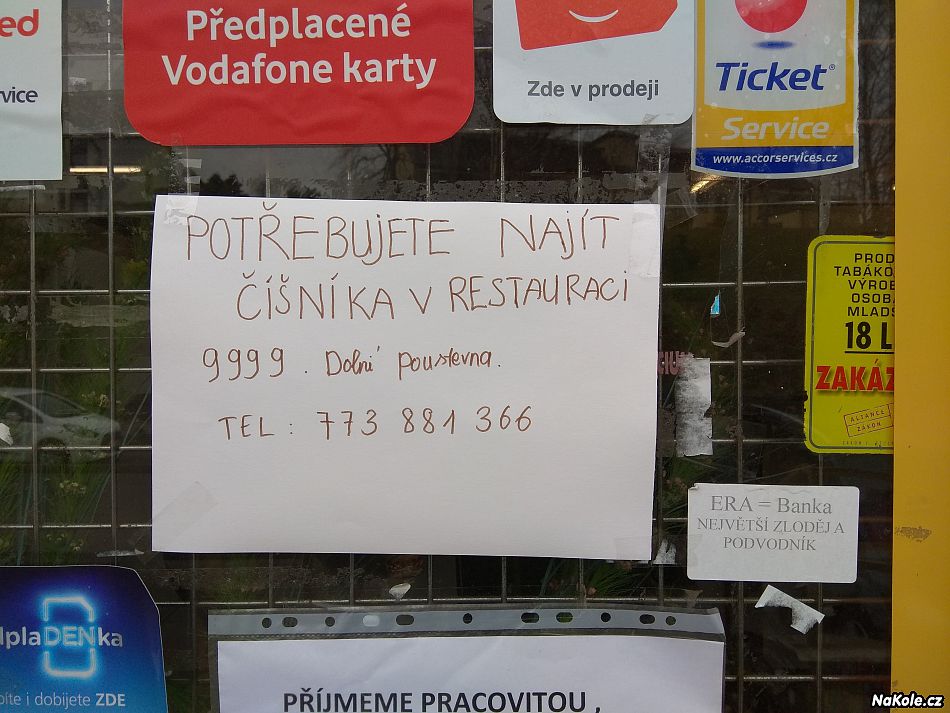 ed
vice
Předplacené
Vodafone karty
Zde v prodeji
Ticket®
Service
www.accorservices.cz
POTŘEBUJETE NAJÍT
ČÍŠNÍKA V RESTAURACI
9999. Dolní poustevna.
TEL: 773 881 366
PROD
TABÁKO
VÝROB
OSOBÁ
MLADŠ
18 L
ZAKÁZ
ALIANCE
ZÁKON
ERA = Banka
NEJVĚTŠÍ ZLODĚJ A
PODVODNÍK
lplaDENka
píte i dobijete ZDE
PŘÍJMEME PRACOVITOU ,
NaKole.cz